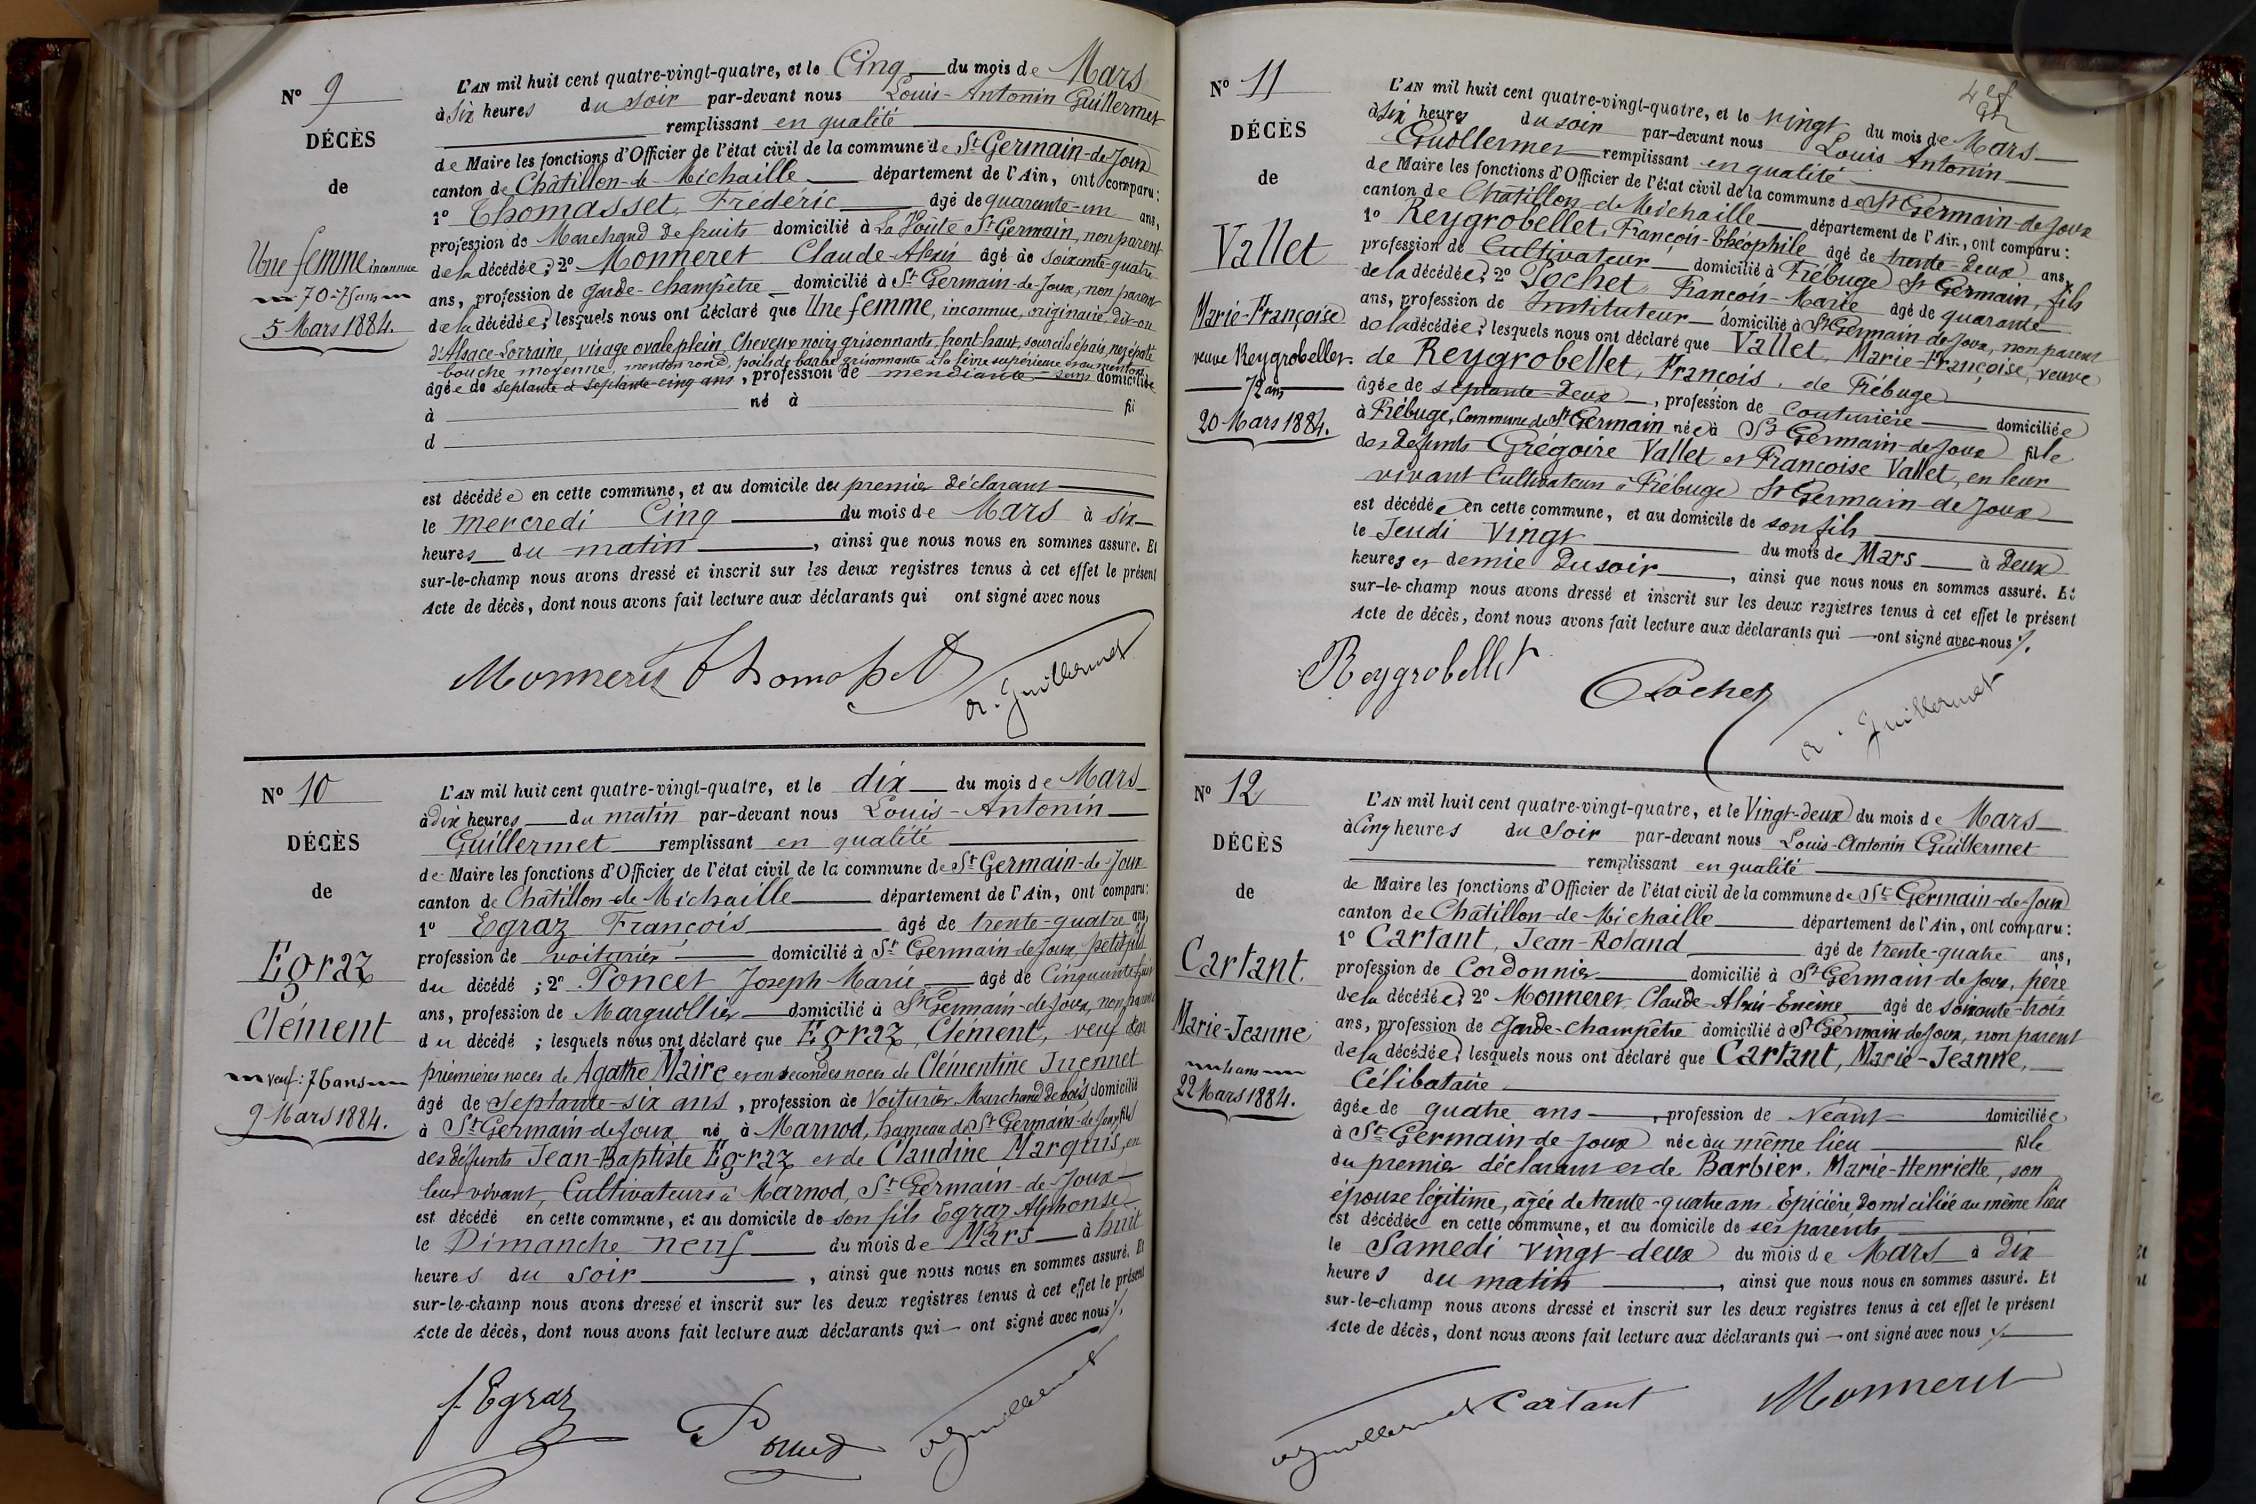 N° 9
DÉCÈS
de
Une femme inconnue
70-75 ans
5 Mars 1884.
L'AN mil huit cent quatre-vingt-quatre, et le Cinq du mois de Mars
à six heures du soir par-devant nous Louis-Antonin Guillermet
remplissant en qualité
de Maire les fonctions d'Officier de l'état civil de la commune de St Germain-de-Joux
canton de Châtillon-de-Michaille département de l'Ain, ont comparu:
1° Thomasset, Frédéric âgé de quarante-un ans,
profession de Marchand de fruits domicilié à La Voûte St Germain, non parent
de la décédée; 2° Monneret Claude-Alexis âgé de soixante-quatre
ans, profession de garde-champêtre domicilié à St Germain-de-Joux, non parent
de la décédée; lesquels nous ont déclaré que Une femme, inconnue, originaire, dit-on
d'Alsace-Lorraine, visage ovale plein, Cheveux noirs grisonnants, front haut, sourcils épais, nez épaté
bouche moyenne, menton rond, poils de barbe grisonnants à la lèvre supérieure et au menton
âgée de septante à septante-cinq ans, profession de mendiante sans domicilée
à né à fi
d
est décédée en cette commune, et au domicile du premier déclarant
le mercredi Cinq du mois de Mars à six
heures du matin, ainsi que nous nous en sommes assuré. Et
sur-le-champ nous avons dressé et inscrit sur les deux registres tenus à cet effet le présent
Acte de décès, dont nous avons fait lecture aux déclarants qui ont signé avec nous
Monneret Thomasset a. Guillermet
N° 10
DÉCÈS
de
Egraz
Clément
veuf: 76 ans
9 Mars 1884.
L'AN mil huit cent quatre-vingt-quatre, et le dix du mois de Mars
à dix heures du matin par-devant nous Louis-Antonin
Guillermet remplissant en qualité
de Maire les fonctions d'Officier de l'état civil de la commune de St Germain-de-Joux
canton de Châtillon-de-Michaille département de l'Ain, ont comparu:
1° Egraz François âgé de trente-quatre ans,
profession de voiturier domicilié à St Germain-de-Joux, petit fils
du décédé; 2° Poncet Joseph-Marie âgé de Cinquante-huit
ans, profession de Marguillier domicilié à St Germain-de-Joux, non parent
du décédé; lesquels nous ont déclaré que Egraz, Clément, veuf en
premières noces de Agathe Maire et en secondes noces de Clémentine Juennet
âgé de septante-six ans, profession de Voiturier Marchand de bois, domicilié
à St Germain-de-Joux né à Marnod, hameau de St Germain-de-Joux, fils
des défunts Jean-Baptiste Egraz et de Claudine Marquis, en
leur vivant, Cultivateurs à Marnod, St Germain-de-Joux
est décédé en cette commune, et au domicile de son fils Egraz Alphonse
le Dimanche neuf du mois de Mars à huit
heures du soir, ainsi que nous nous en sommes assuré. Et
sur-le-champ nous avons dressé et inscrit sur les deux registres tenus à cet effet le présent
Acte de décès, dont nous avons fait lecture aux déclarants qui ont signé avec nous
f. Egraz Poncet a guillermet
N° 11
DÉCÈS
de
Vallet
Marie-Françoise
veuve Reygrobellet
72 ans
20 Mars 1884.
L'AN mil huit cent quatre-vingt-quatre, et le vingt du mois de Mars
à six heures du soir par-devant nous Louis Antonin
Guillermet remplissant en qualité
de Maire les fonctions d'Officier de l'état civil de la commune de St Germain-de-Joux
canton de Châtillon-de-Michaille département de l'Ain, ont comparu:
1° Reygrobellet, François-Théophile âgé de trente-deux ans,
profession de Cultivateur domicilié à Frébuge St Germain, fils
de la décédée; 2° Pochet, François-Marie âgé de quarante
ans, profession de Instituteur domicilié à St Germain-de-Joux, non parent
de la décédée; lesquels nous ont déclaré que Vallet, Marie-Françoise, veuve
de Reygrobellet, François, de Frébuge
âgée de septante-deux, profession de couturière domiciliée
à Frébuge, Commune de St Germain née à St Germain-de-Joux fille
des défunts Grégoire Vallet et Françoise Vallet, en leur
vivant Cultivateurs à Frébuge St Germain-de-Joux
est décédée en cette commune, et au domicile de son fils
le Jeudi Vingt du mois de Mars à deux
heures et demie du soir, ainsi que nous nous en sommes assuré. Et
sur-le-champ nous avons dressé et inscrit sur les deux registres tenus à cet effet le présent
Acte de décès, dont nous avons fait lecture aux déclarants qui ont signé avec nous
Reygrobellet Pochet a. Guillermet
N° 12
DÉCÈS
de
Cartant.
Marie-Jeanne
4 ans
22 Mars 1884.
L'AN mil huit cent quatre-vingt-quatre, et le Vingt-deux du mois de Mars
à Cinq heures du Soir par-devant nous Louis-Antonin Guillermet
remplissant en qualité
de Maire les fonctions d'Officier de l'état civil de la commune de St Germain-de-Joux
canton de Châtillon-de-Michaille département de l'Ain, ont comparu:
1° Cartant, Jean-Roland âgé de trente-quatre ans,
profession de Cordonnier domicilié à St Germain-de-Joux, père
de la décédée; 2° Monneret Claude-Alexis-Enème âgé de soixante-trois
ans, profession de Garde-champêtre domicilié à St Germain-de-Joux, non parent
de la décédée; lesquels nous ont déclaré que Cartant, Marie-Jeanne,
Célibataire
âgée de quatre ans, profession de Néant domiciliée
à St Germain-de-Joux née au même lieu fille
du premier déclarant et de Barbier, Marie-Henriette, son
épouse légitime, âgée de trente-quatre ans, Epicière domiciliée au même lieu
est décédée en cette commune, et au domicile de ses parents
le Samedi vingt-deux du mois de Mars à dix
heures du matin, ainsi que nous nous en sommes assuré. Et
sur-le-champ nous avons dressé et inscrit sur les deux registres tenus à cet effet le présent
Acte de décès, dont nous avons fait lecture aux déclarants qui ont signé avec nous
a guillermet Cartant Monneret